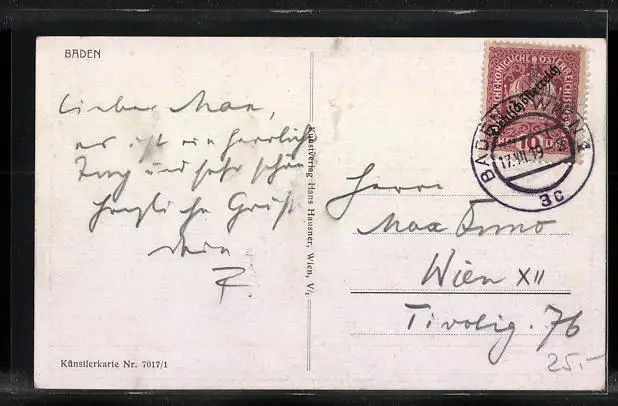 BADEN
Lieber Max,
es ist ein herrlicher
Tag und sehr schön
herzliche Grüße
dein
F.
Kunstverlag Hans Hausner, Wien, V/1
KAISERLICHE KÖNIGLICHE ÖSTERREICHISCHE
Deutschösterreich
10
BADEN WIEN 1
17.VII.19
3c
Herrn
Max
Wien XII
Tivolig. 76
25.-
Künstlerkarte Nr. 7017/1